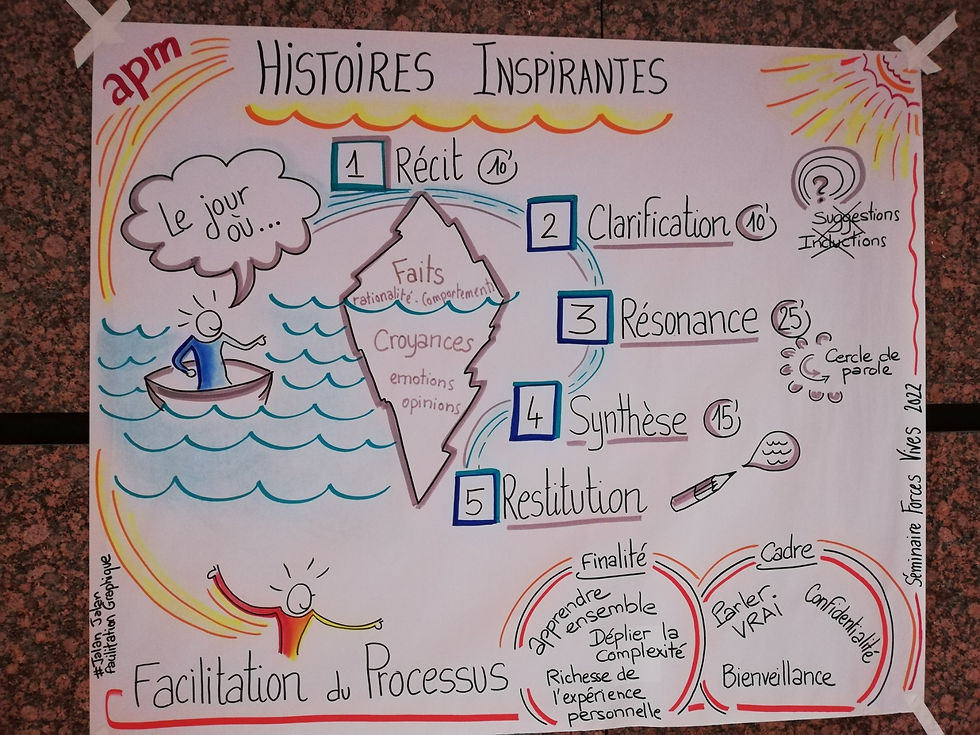 apm
HISTOIRES INSPIRANTES
Le jour
où...
1 Récit 10'
2 Clarification 10'
?
Suggestions
Inductions
3 Résonance 25'
Cercle de
parole
4 Synthèse 15'
5 Restitution
Faits
rationalité - comportements
Croyances
emotions
opinions
Séminaire Forces Vives 2022
#Jalan Jalan
Facilitation Graphique
Facilitation du Processus
Finalité
apprendre
ensemble
Déplier la
complexité
Richesse de
l'expérience
personnelle
Cadre
Parler
VRAI
Confidentialité
Bienveillance